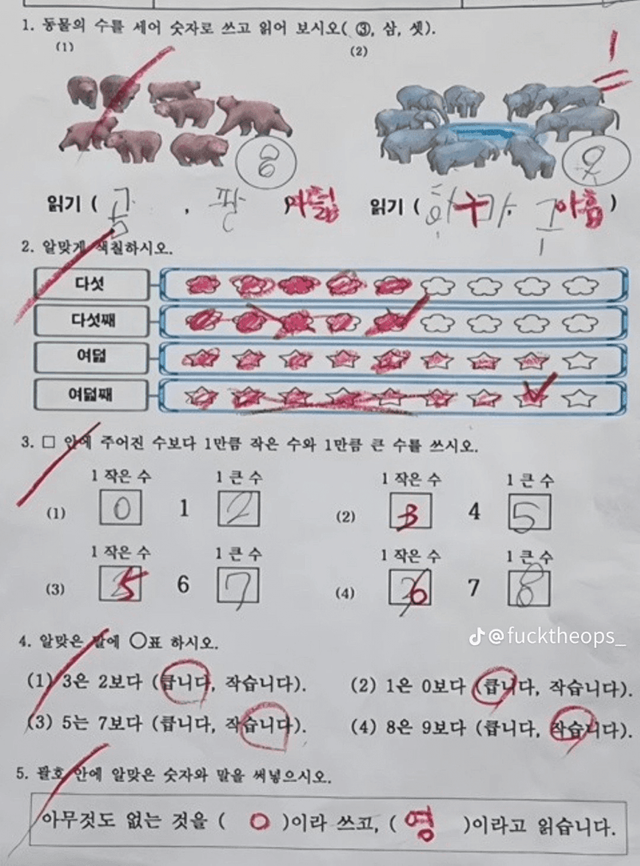 1. 동물의 수를 세어 숫자로 쓰고 읽어 보시오( ③, 삼, 셋).
(1) (2)
8
읽기 ( , 팔 )여덟 읽기 ( , 아홉 )
2. 알맞게 색칠하시오.
다섯
다섯째
여덟
여덟째
3. □ 안에 주어진 수보다 1만큼 작은 수와 1만큼 큰 수를 쓰시오.
1 작은 수 1 큰 수 1 작은 수 1 큰 수
(1) 0 1 2 (2) 3 4 5
1 작은 수 1 큰 수 1 작은 수 1 큰 수
(3) 5 6 7 (4) 6 7 8
4. 알맞은 말에 ○표 하시오.
@fucktheops_
(1) 3은 2보다 (큽니다, 작습니다). (2) 1은 0보다 (큽니다, 작습니다).
(3) 5는 7보다 (큽니다, 작습니다). (4) 8은 9보다 (큽니다, 작습니다).
5. 괄호 안에 알맞은 숫자와 말을 써넣으시오.
아무것도 없는 것을 ( 0 )이라 쓰고, ( 영 )이라고 읽습니다.